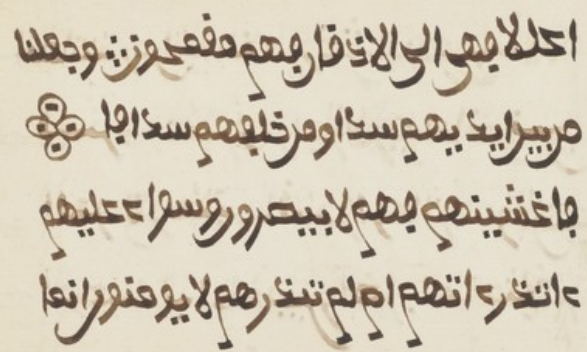 اغللا فهى الى الاذقان فهم مقمحون وجعلنا
من بين ايديهم سدا ومن خلفهم سدا فا
فاغشينهم فهم لا يبصرون وسواء عليهم
ءانذرتهم ام لم تنذرهم لا يومنون انما